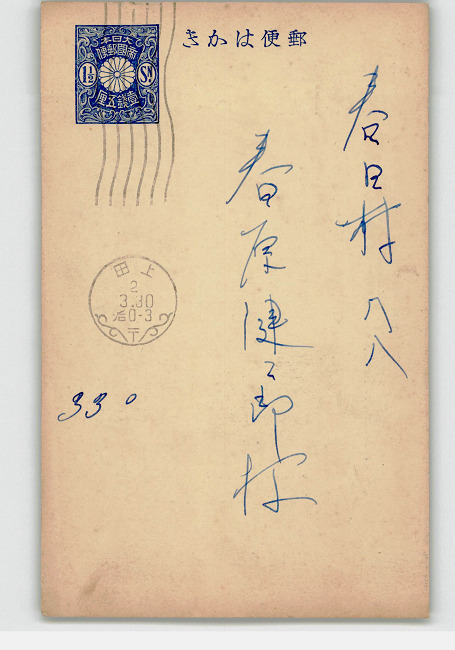 郵便はかき
大日本
帝國郵便
1½ Sn
壹銭五厘
春日村 八八
春原健三郎様
上田
2
3.30
0-3
〒
330